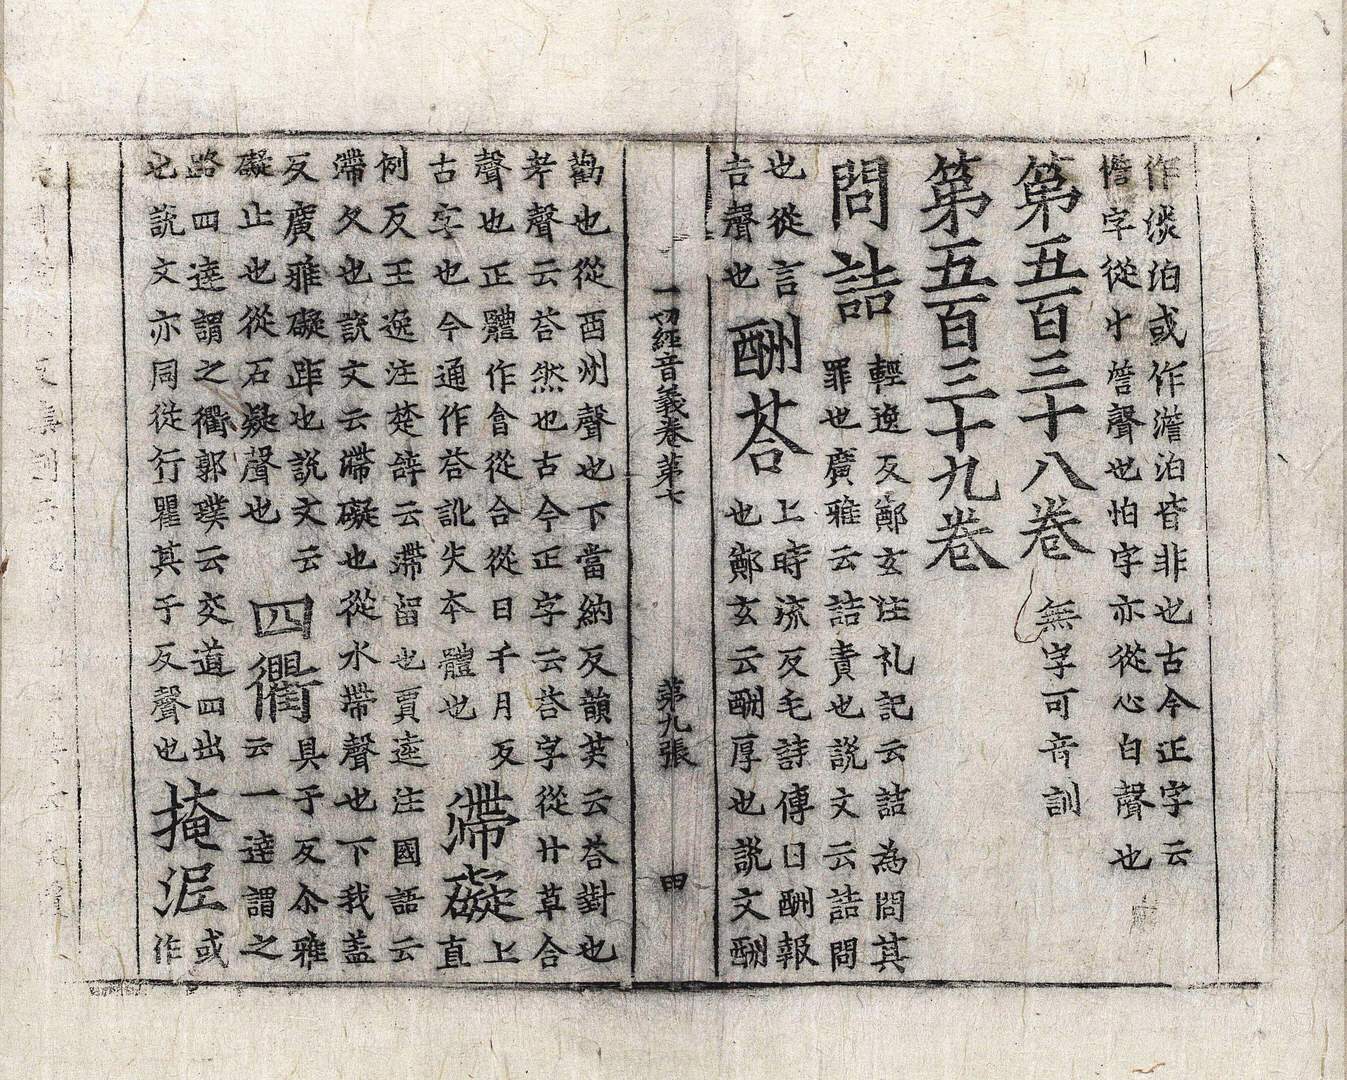 作淡泊或作澹泊皆非也古今正字云
憺字從忄詹聲也怕字亦從心白聲也
第五百三十八卷 無字可音訓
第五百三十九卷
問詰
輕逸反鄭玄注礼記云詰為問其
罪也廣雅云詰責也說文云詰問
也從言
吉聲也
酬荅
上時流反毛詩傳曰酬報
也鄭玄云酬厚也說文酬
一切經音義卷第七 第九張 申
勸也從酉州聲也下當納反韻英云荅對也
考聲云荅然也古今正字云荅字從廾草合
聲也正體作會從合從日千月反
古字也今通作荅訛失本體也
滯礙
上
直
例反王逸注楚辞云滯留也賈逵注國語云
滯久也說文云滯礙也從水帶聲也下我盖
反廣雅礙距也說文云
礙止也從石疑聲也
四衢
具于反尒雅
云一達謂之
路四達謂之衢郭璞云交道四出
也說文亦同從行瞿其于反聲也
掩泥
或
作